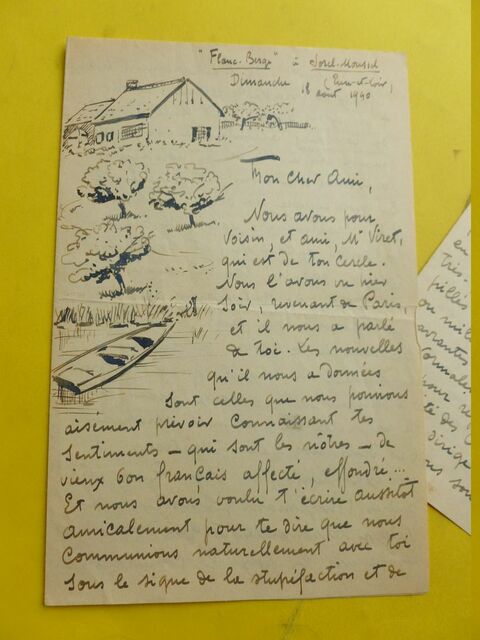 "Flanc-Berge" à Sorel-Moussel
(Eure-et-Loir)
Dimanche 18 août 1940
Mon cher Ami,
Nous avons pour
voisin, et ami, Mr Viret,
qui est de ton cercle.
Nous l'avons vu hier
soir, revenant de Paris,
et il nous a parlé
de toi. Les nouvelles
qu'il nous a données
sont celles que nous pouvions
aisément prévoir connaissant tes
sentiments - qui sont les nôtres - de
vieux bon français affecté, effondré...
Et nous avons voulu t'écrire aussitôt
amicalement pour te dire que nous
communions naturellement avec toi
sous le signe de la stupéfaction et de
au
très
pillés
ou mil
formale
pour re
té des
dirige